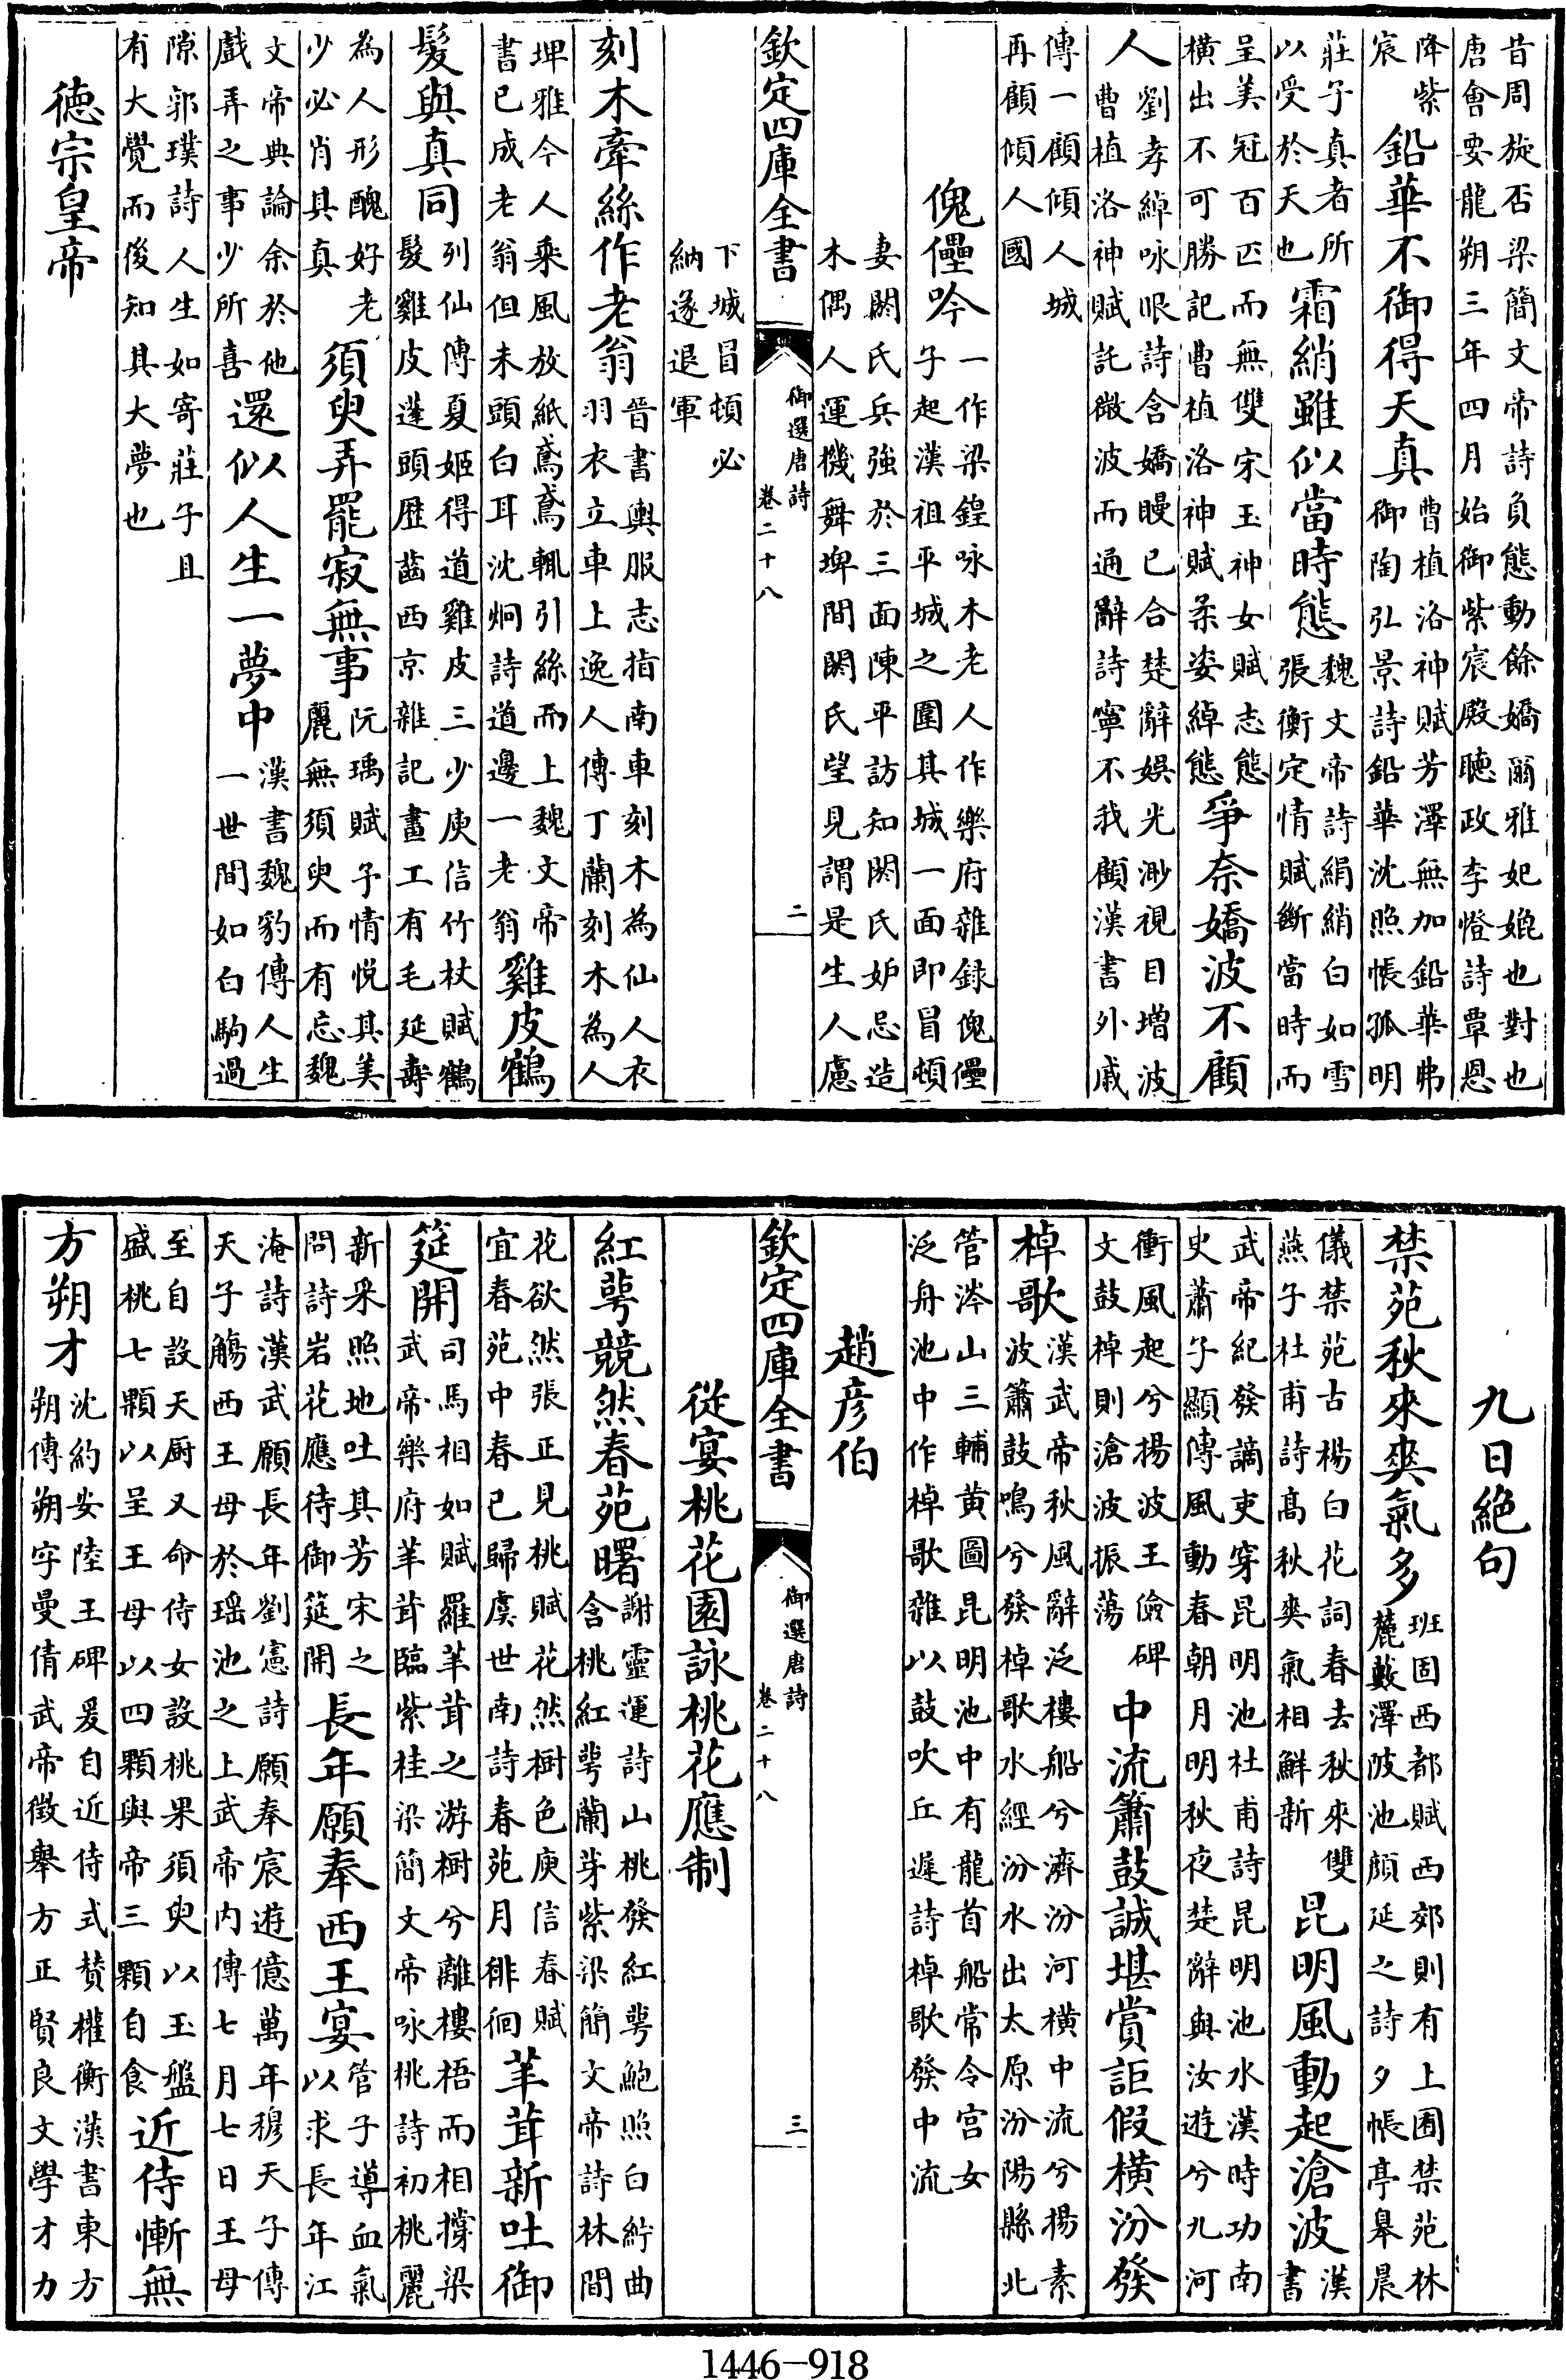 昔周旋否梁簡文帝詩負態動餘嬌爾雅妃媲也對也
唐會要龍朔三年四月始御紫宸殿聽政李燈詩覃恩
降紫
宸
鉛華不御得天真
曹植洛神賦芳澤無加鉛華弗
御陶弘景詩鉛華沈照帳孤明
莊子真者所
以受於天也
霜綃雖似當時態
魏文帝詩絹綃白如雪
張衡定情賦斷當時而
呈美冠百匹而無雙宋玉神女賦志態
橫出不可勝記曹植洛神賦柔姿綽態
爭奈嬌波不顧
人
劉孝綽咏眼詩含嬌瞍已合楚辭娛光渺視目增波
曹植洛神賦託微波而通辭詩寧不我顧漢書外戚
傳一顧傾人城
再顧傾人國
傀儡吟
一作梁鍠咏木老人作樂府雜録傀儡
子起漢祖平城之圍其城一面即冒頓
妻閼氏兵強於三面陳平訪知閼氏妒忌造
木偶人運機舞埤間閼氏望見謂是生人慮
欽定四庫全書
御選唐詩
卷二十八
二
下城冒頓必
納遂退軍
刻木牽絲作老翁
晉書輿服志指南車刻木為仙人衣
羽衣立車上逸人傳丁蘭刻木為人
埤雅今人乘風放紙鳶鳶輒引絲而上魏文帝
書已成老翁但未頭白耳沈炯詩道邊一老翁
雞皮鶴
髮與真同
列仙傳夏姬得道雞皮三少庾信竹杖賦鶴
髮雞皮蓬頭歷齒西京雜記畫工有毛延壽
為人形醜好老
少必肖其真
須臾弄罷寂無事
阮瑀賦予情悅其美
麗無須臾而有忘魏
文帝典論余於他
戲弄之事少所喜
還似人生一夢中
漢書魏豹傳人生
一世間如白駒過
隙郭璞詩人生如寄莊子且
有大覺而後知其大夢也
德宗皇帝
九日絕句
禁苑秋來爽氣多
班固西都賦西郊則有上囿禁苑林
麓藪澤陂池顏延之詩夕帳亭皋晨
儀禁苑古楊白花詞春去秋來雙
燕子杜甫詩高秋爽氣相鮮新
昆明風動起滄波
漢
書
武帝紀發謫吏穿昆明池杜甫詩昆明池水漢時功南
史蕭子顯傳風動春朝月明秋夜楚辭與汝遊兮九河
衝風起兮揚波王儉碑
文鼓棹則滄波振蕩
中流簫鼓誠堪賞詎假橫汾發
棹歌
漢武帝秋風辭泛樓船兮濟汾河橫中流兮揚素
波簫鼓鳴兮發棹歌水經汾水出太原汾陽縣北
管涔山三輔黃圖昆明池中有龍首船常令宮女
泛舟池中作棹歌雜以鼓吹丘遲詩棹歌發中流
趙彥伯
欽定四庫全書
御選唐詩
卷二十八
三
從宴桃花園詠桃花應制
紅萼競然春苑曙
謝靈運詩山桃發紅萼鮑照白紵曲
含桃紅萼蘭芽紫梁簡文帝詩林間
花欲然張正見桃賦花然樹色庾信春賦
宜春苑中春已歸虞世南詩春苑月徘徊
羊茸新吐御
筵開
司馬相如賦羅羊茸之游樹兮離樓梧而相撐梁
武帝樂府羊茸臨紫桂梁簡文帝咏桃詩初桃麗
新采照地吐其芳宋之
問詩岩花應待御筵開
長年願奉西王宴
管子導血氣
以求長年江
淹詩漢武願長年劉憲詩願奉宸遊億萬年穆天子傳
天子觴西王母於瑤池之上武帝內傳七月七日王母
至自設天厨又命侍女設桃果須臾以玉盤
盛桃七顆以呈王母以四顆與帝三顆自食
近侍慚無
方朔才
沈約安陸王碑爰自近侍式贊權衡漢書東方
朔傳朔字曼倩武帝徵舉方正賢良文學才力
1446-918